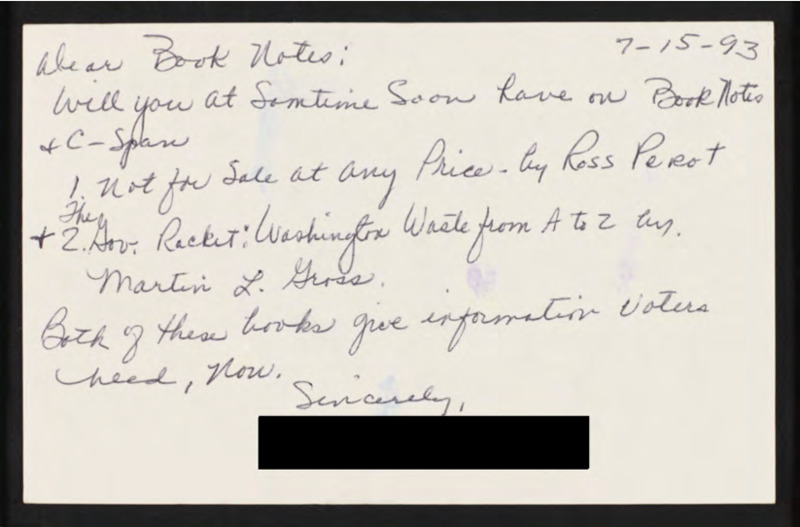 7-15-93
Dear Book Notes:
Will you at Somtime Soon have on Book Notes
& C-Span
1. Not for Sale at any Price - by Ross Perot
The
+ 2. Gov. Racket: Washington Waste from A to Z by.
Martin L. Gross.
Both of these books give information voters
need, now.
Sincerely,